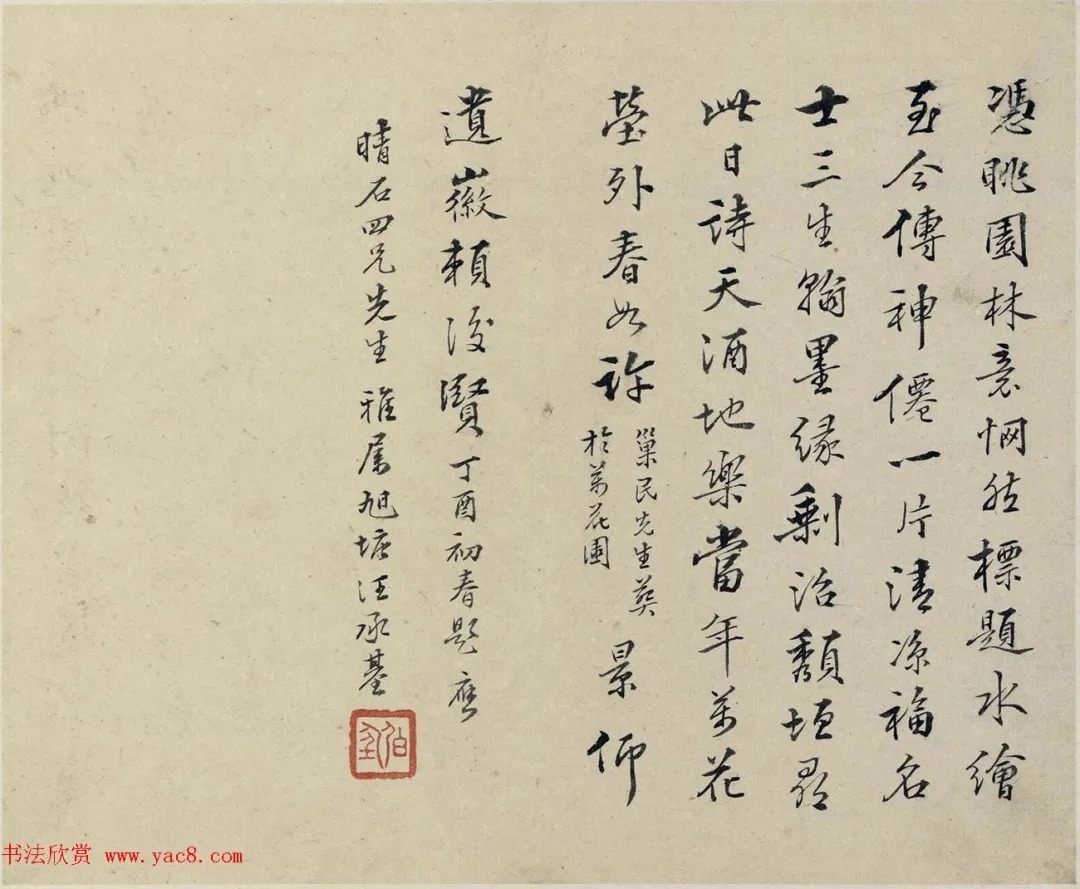 憑眺園林意惘然標題水繪
至今傳神僊一片清涼福名
士三生翰墨緣剩沿頹垣尋
此日詩天酒地樂當年萬花
塋外春如許巢民先生葬
於萬花園景仰
遺徽賴後賢丁酉初春題應
晴石四兄先生雅屬旭塘汪承基
书法欣赏 www.yac8.com